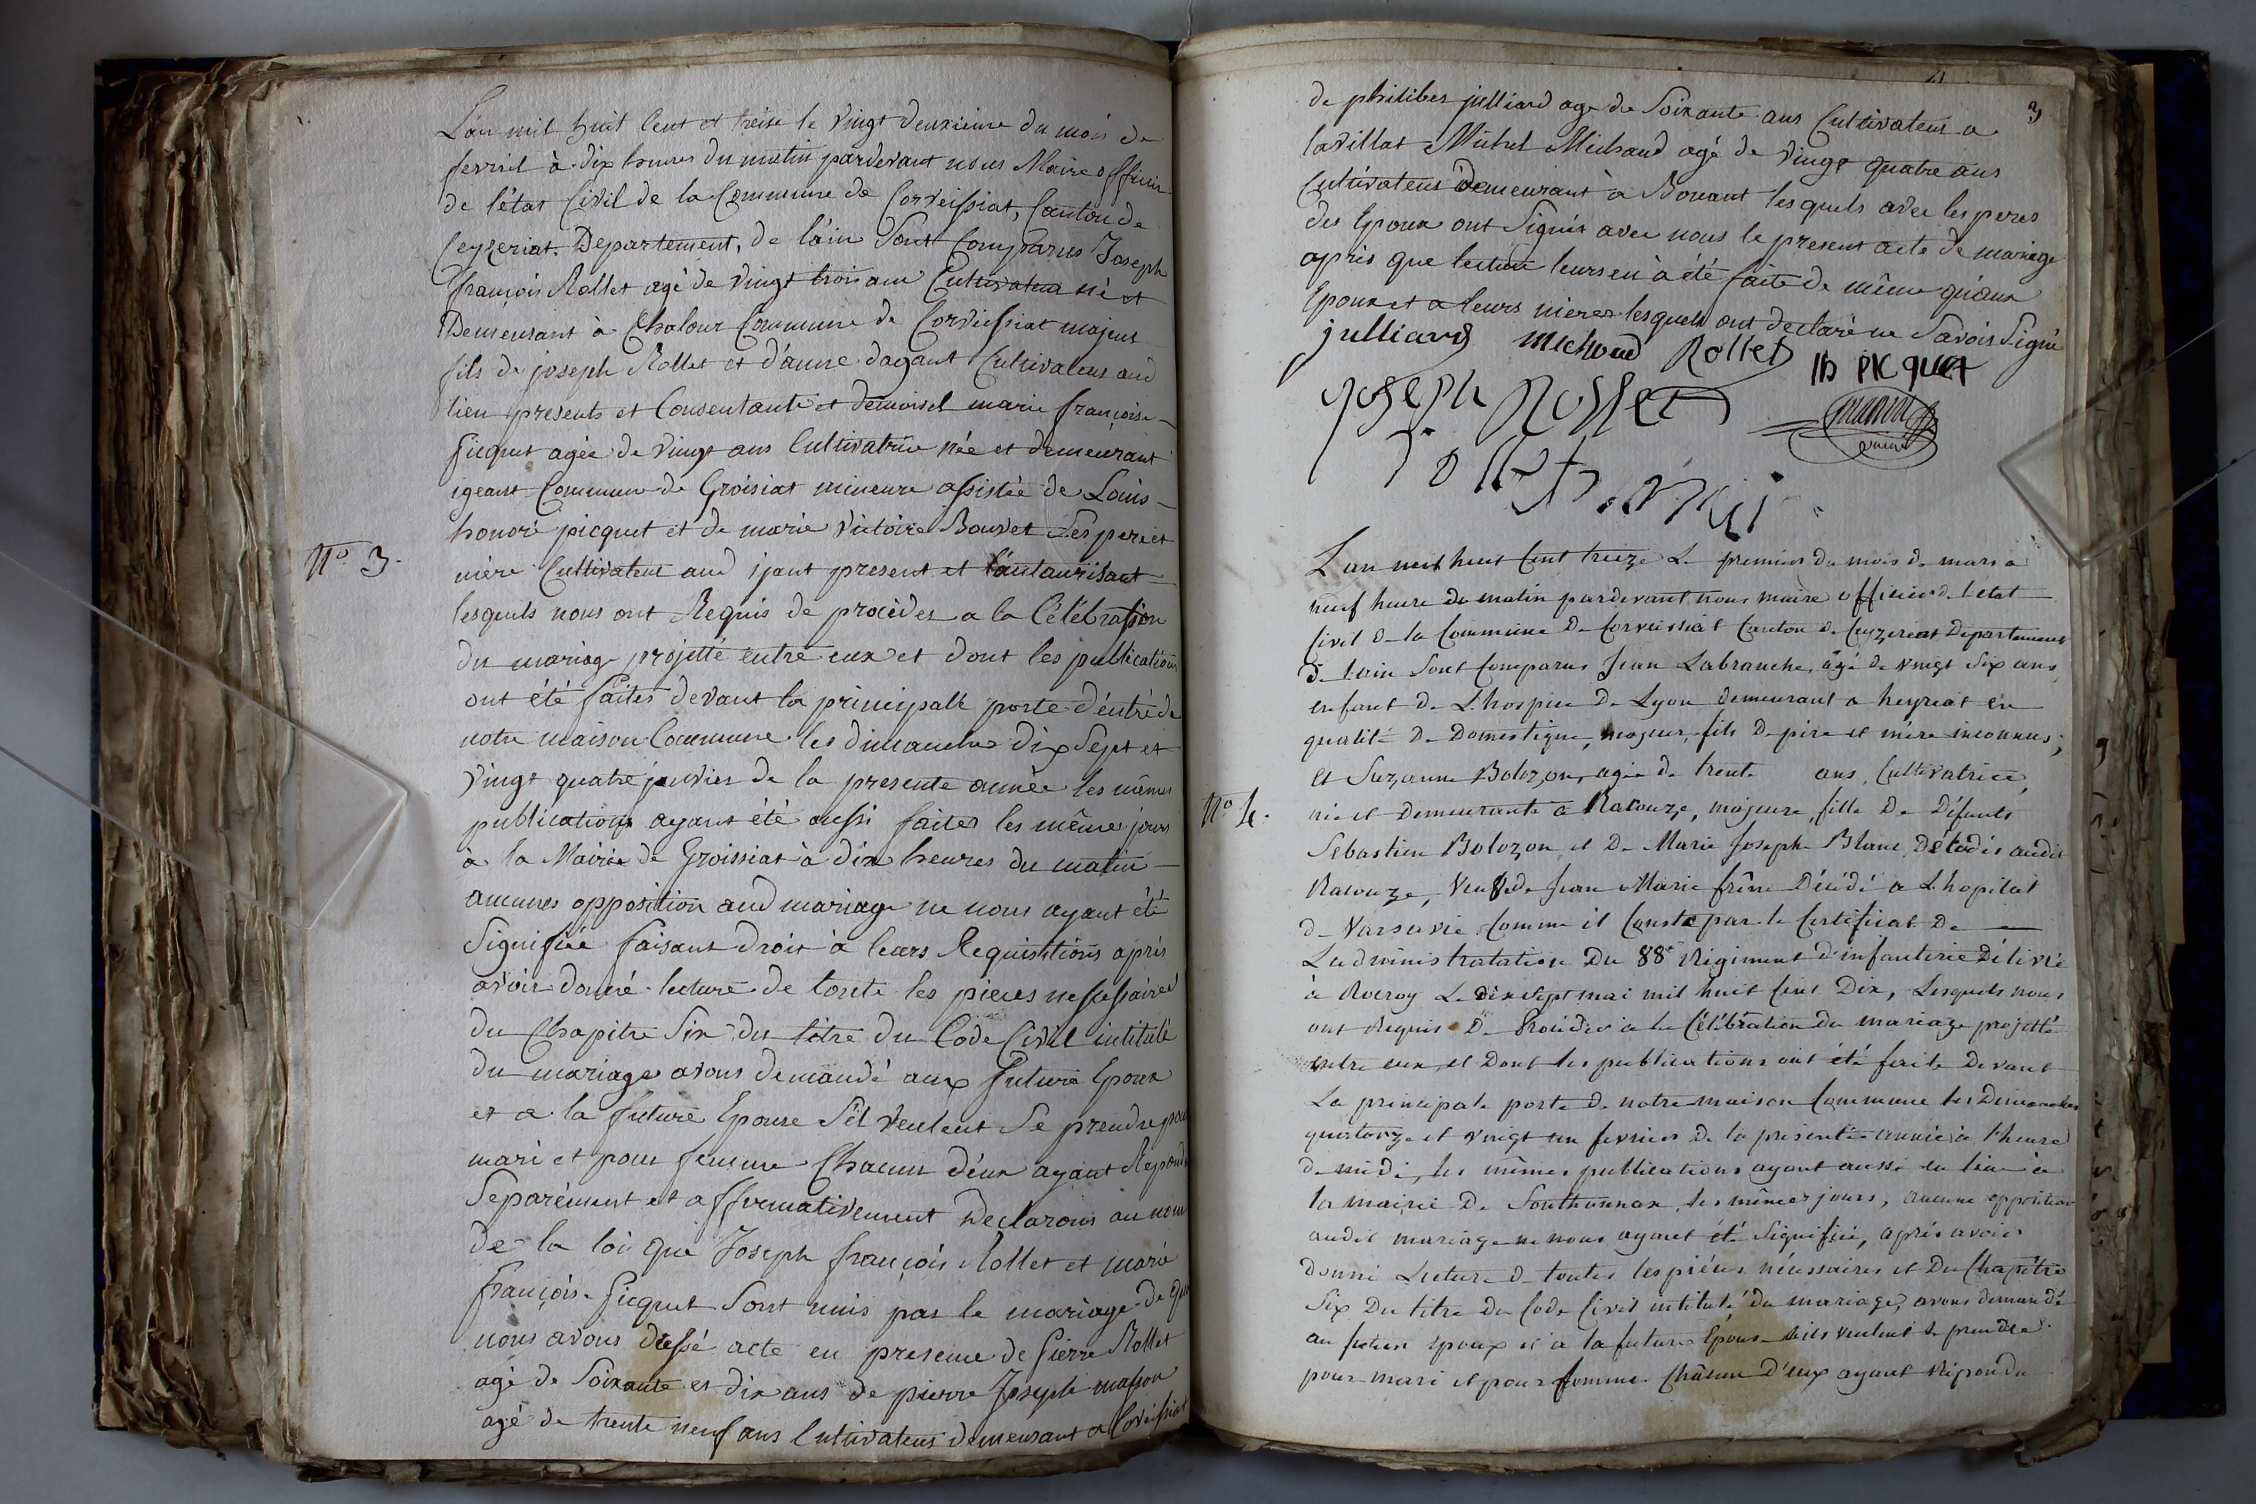 N° 3.
L'an mil huit Cent et treise le vingt deuxieme du mois de
fevrié à dix heures du matin pardevant nous Maire officier
de létat Civil de la Commune de Corveissiat, Canton de
Ceyzeriat Departement, de lain Sont Comparus Joseph
françois Rollet agé de vingt trois ans Cultivateur né et
Demeurant à Chalour Commune de Corveissiat majeur
fils de joseph Rollet et d'anne dagant Cultivateur aud
lieu presents et Consentants et demoisel marie françoise
picquet agée de vingt ans Cultivatrice née et demeurant
igeant Commune de Groisiat mineure assistée de Louis
honoré picquet et de marie victoire Bouvet Ses pere et
mère Cultivateur aud ijant present et l'autaurisant
lesquels nous ont Requis de procèder a la Célébration
du mariage projetté entre eux et dont les publications
ont été faites devant la principalle porte d'entré de
notre maison Commune les dimanches dix Sept et
vingt quatre janvier de la presente année les mêmes
publications ayant été aussi faites les même jours
à la Mairie de Groissiat à dix heures du matin
aucunes opposition aud mariage ne nous ayant été
Signifiée faisant droit à leurs Requisitions après
avoir donné lecture de toute les pieces nessessaires
du Chapitre Six du titre du Code Civil intitulé
du mariage avons demandé aux futurs Epoux
et a la future Epouse S'il veulent Se prendre pour
mari et pour femme Chacun d'eux ayant Repondu
Separément et affirmativement Declarons au nom
de la loi que Joseph françois Rollet et marie
françois. picquet Sont unis par le mariage de quoi
nous avons dressé acte en presence de pierre Rollet
agé de Soixante et dix ans de pierre Joseph masson
agé de trente neuf ans Cultivateurs demeurant a Corveissiat
3
de philibert julliard age de Soixante ans Cultivateur a
lavillat Michel Michaud agé de vingt quatre ans
Cultivateur Demeurant à Bouant lesquels avec les peres
des Epoux ont Signés avec nous le present acte de mariage
après que lecture leurs en à été faite de même qu'aux
Epoux et a leurs mères lesquels ont declaré ne Savoir Signé
julliard michaud Rollet lh PICquet
joseph Rollet
N° 4.
L'an mil huit Cent treize Le premier du mois de mars à
neuf heure du matin pardevant nous maire officier de l'état
Civil de la Commune De Corveissiat Canton de Ceyzeriat Departement
De lain Sont Comparus Jean Labranche, agé de vingt Six ans
enfant De L'hospice De Lyon demeurant a heyriat en
qualité De Domestique, majeur, fils De père et mère inconnus,
et Suzanne Bolozon, agée de trente ans, Cultivatrice,
née et Demeurante à Racouze, majeure, fille De Défunts
Sebastien Bolozon et De Marie Joseph Blanc Décédés audit
Racouze, veuve de Jean Marie frême Décédé a L'hopital
de Varsavie Comme il Conste par le Certificat De
Ladministratation Du 88e Régiment d'infanterie Délivré
à Rocroy Le dix sept mai mil huit Cent Dix, Lesquels nous
ont Requis De Procéder à la Célébration Du mariage projetté
entre eux, et Dont les publications ont été faite Devant
La principale porte De notre maison Commune les Dimanches
quatorze et vingt un fevrier De la présente année à l'heure
De midi, les mêmes publications ayant aussi eu lieu à
la mairie De Sonthonnax, les mêmes jours, aucune opposition
audit mariage ne nous ayant été Signifiée, après avoir
Donné Lecture De toutes les pièces nécessaires et Du Chapitre
Six Du titre Du Code Civil intitulé Du mariage, avons demandé
au futur époux et à la future Epouse s'ils veulent se prendre
pour mari et pour femme. Châcun D'eux ayant Répondu